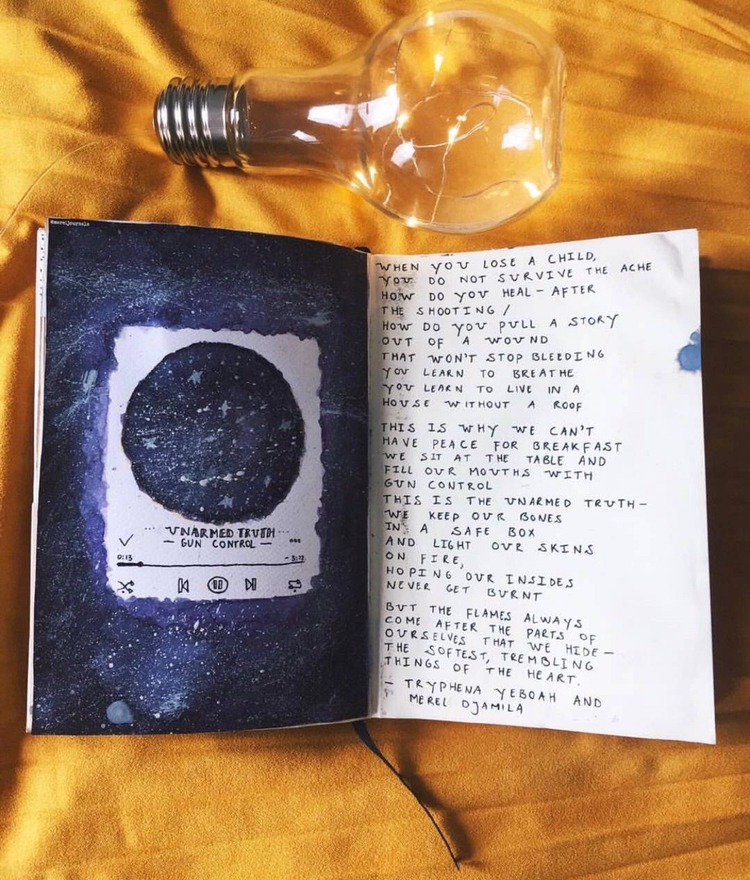 @mereljournals
UNARMED TRUTH
– GUN CONTROL –
0:13
- 3:12
WHEN YOU LOSE A CHILD,
YOU DO NOT SURVIVE THE ACHE
HOW DO YOU HEAL – AFTER
THE SHOOTING /
HOW DO YOU PULL A STORY
OUT OF A WOUND
THAT WON'T STOP BLEEDING
YOU LEARN TO BREATHE
YOU LEARN TO LIVE IN A
HOUSE WITHOUT A ROOF
THIS IS WHY WE CAN'T
HAVE PEACE FOR BREAKFAST
WE SIT AT THE TABLE AND
FILL OUR MOUTHS WITH
GUN CONTROL
THIS IS THE UNARMED TRUTH –
WE KEEP OUR BONES
IN A SAFE BOX
AND LIGHT OUR SKINS
ON FIRE,
HOPING OUR INSIDES
NEVER GET BURNT
BUT THE FLAMES ALWAYS
COME AFTER THE PARTS OF
OURSELVES THAT WE HIDE –
THE SOFTEST, TREMBLING
THINGS OF THE HEART.
– TRYPHENA YEBOAH AND
MEREL DJAMILA